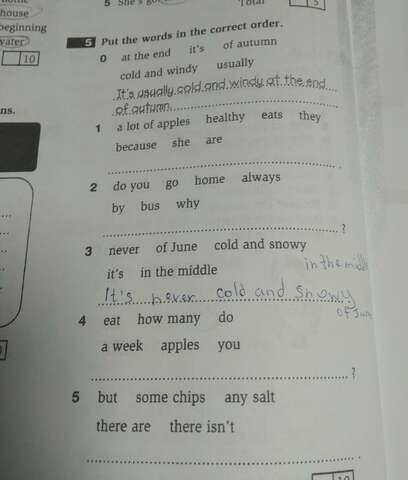 5 She's go
Total 5
house
beginning
water
10
5 Put the words in the correct order.
0 at the end it's of autumn
cold and windy usually
It's usually cold and windy at the end
of autumn.
ns.
1 a lot of apples healthy eats they
because she are
.
2 do you go home always
by bus why
?
3 never of June cold and snowy
it's in the middle
in the middle
It's never cold and snowy
of June
4 eat how many do
a week apples you
?
5 but some chips any salt
there are there isn't
.
10